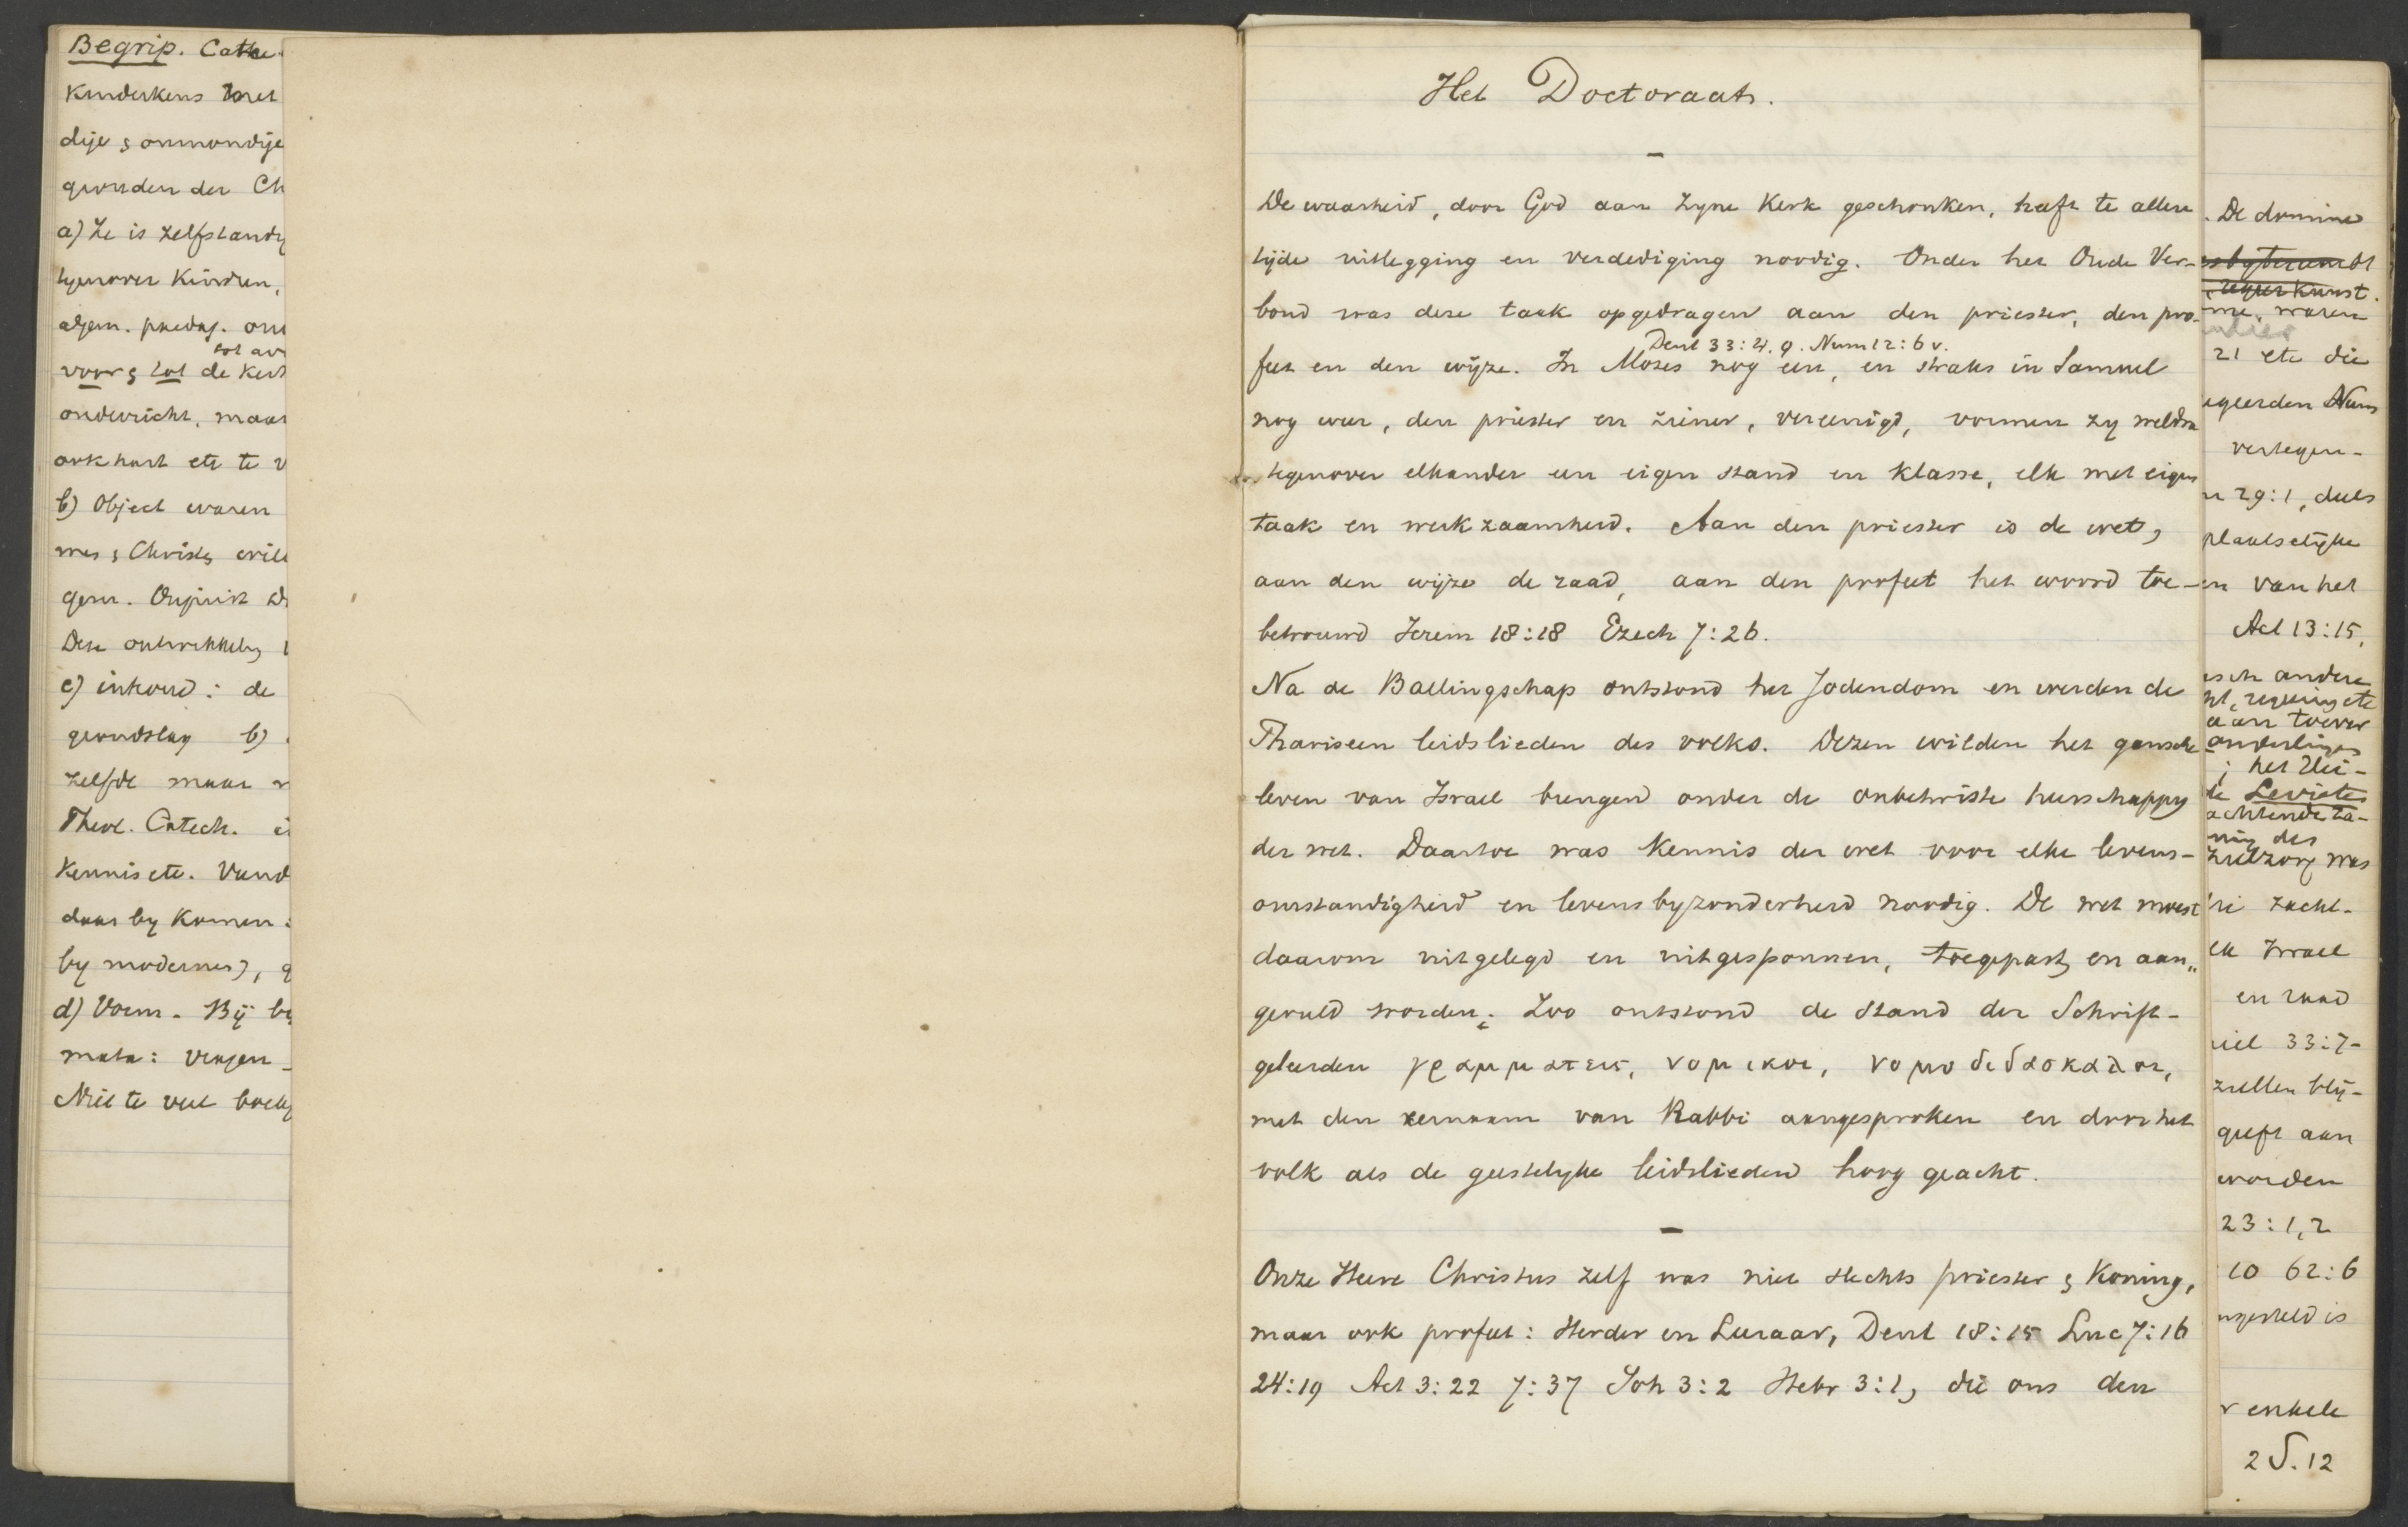 Begrip. Cate
Kinderkens met
dije & onmondige
gronden der Ch
a) Ze is zelfstandig
tegenover Kinderen,
algem. paedag. on
voor & tot de Kerk
onderricht, maar
ook hart etc te v
b) Object waren
mes & Christ, wil
Deze ontwikkeling
c) inhoud: de
grondslag b)
zelfde maar
Theol. Catech.
Kennis etc. Vand
daar by Komen:
by modernes),
d) Vorm. By
mata: vragen
Niet te veel
Het Doctoraat.
De waarheid, door God aan Zyne Kerk geschonken, heeft te allen
tijde uitlegging en verdediging noodig. Onder het Oude Ver-
bond was deze taak opgedragen aan den priester, den pro-
Deut 33:4. 9. Num 12:6 v.
feet en den wijze. In Mozes nog één, en straks in Samuel
nog weer, den priester en ziener, vereenigd, vormen zy weldra
tegenover elkander een eigen stand en klasse, elk met eigen
taak en werkzaamheid. Aan den priester is de wet,
aan den wijze de raad, aan den profeet het woord toe-
betrouwd Jerem 18:18 Ezech 7:26.
Na de Ballingschap ontstond het Jodendom en werden de
Phariseen leidslieden des volks. Dezen wilden het gansche
leven van Israel brengen onder de onbetwiste heerschappy
der wet. Daartoe was Kennis der wet voor elke levens-
omstandigheid en levensbyzonderheid noodig. De wet moest
daarom uitgelegd en uitgesponnen, toegepast en aan„
gevuld worden; Zoo ontstond de stand der Schrift-
geleerden γραμματεις, νομικοι, νομοδιδασκαλοι,
met den eernaam van Rabbi aangesproken en door het
volk als de geestelyke leidslieden hoog geacht.
Onze Heere Christus zelf was niet slechts priester & Koning,
maar ook profeet: Herder en Leeraar, Deut 18:15 Luc 7:16
24:19 Act 3:22 7:37 Joh 3:2 Hebr 3:1, die ons den
De domine
me, waren
21 etc die
egeerden Num
vertegen-
29:1, deels
plaatselijke
en van het
Act 13:15,
sch andere
regeering etc
aan toever
anderlingen
het Uei-
de Leviete
achtende ta-
ning des
zielzorg was
zacht-
Israel
en raad
iel 33:7-
zullen bly-
geeft aan
worden
23:1,2
10 62:6
ngesteld is
r enkele
2 S. 12